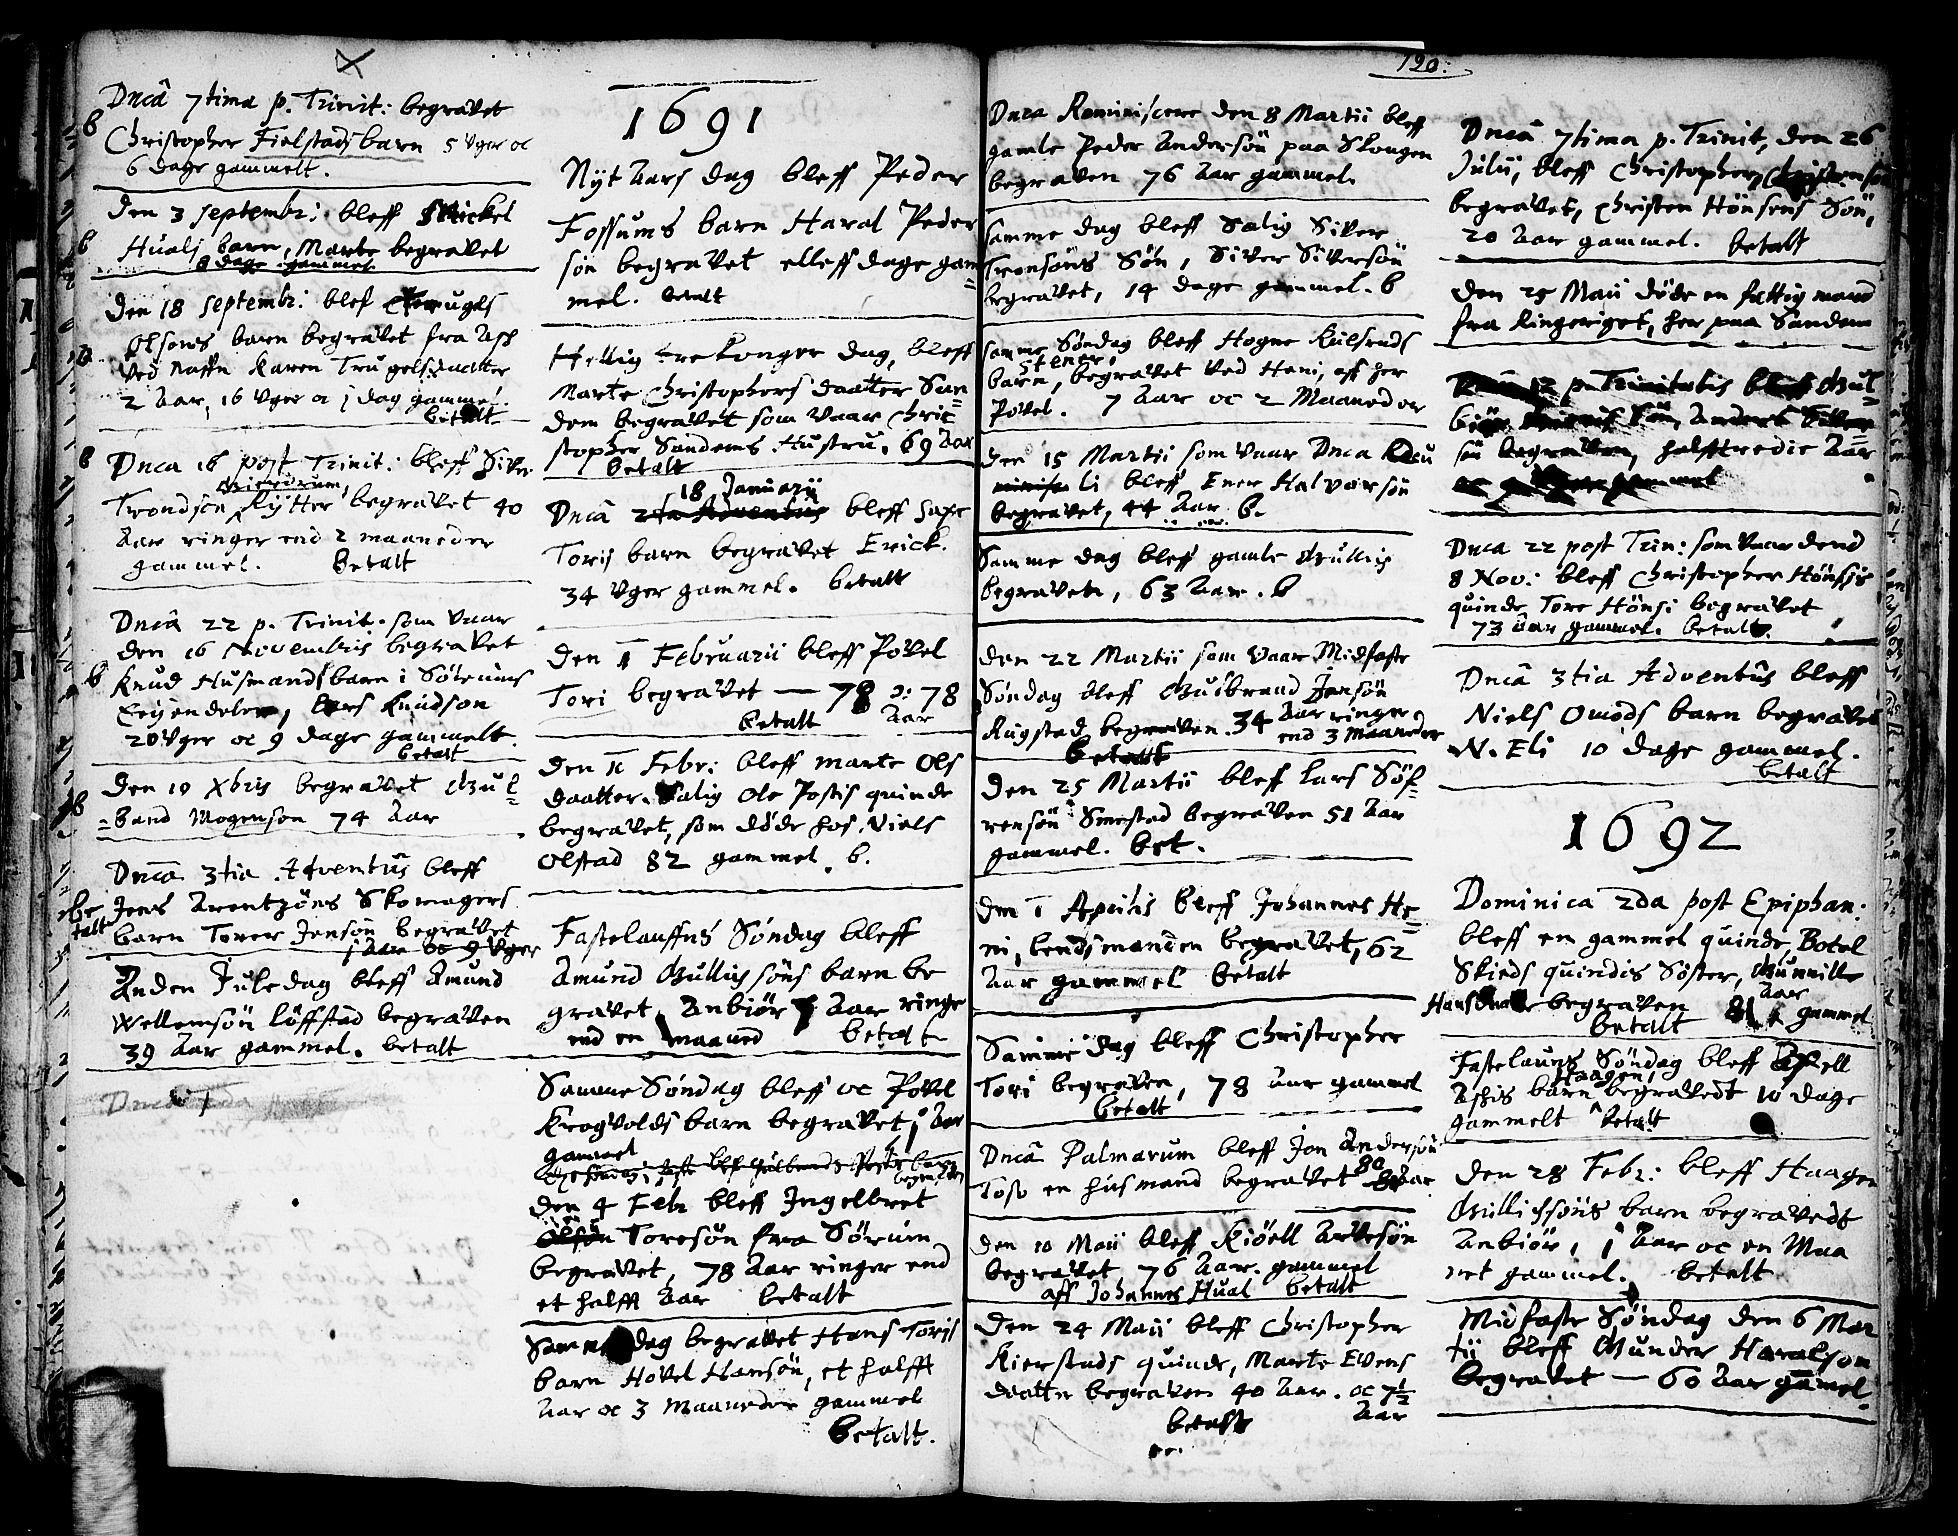 Dncâ 7tima p. Trinit: begravet
b
Christopher Fielstads barn 5 Uger oc
6 dage gammelt.
den 3 septembr: bleff Mickel
b
Huals barn, Marte begravet
8 dage gammel
den 18 septembr: blef Truges
Olsøns barn begravet fra Asf
b
ved naffn Karen Trugelsdaatter
2 Aar, 16 Uger oc 1 dag gammel.
betalt
b
Dnca 16 post Trinit: bleff Siver
Trondsen Rÿtter begravet 40
Aar ringer end 2 maaneder
gammel. betalt
Dncâ 22 p. Trinit. som vaar
den 16 Novembris begravet
b Knud Husmands barn i Sørums
Eeyendeler, Lars Knudson
20 Uger oc 9 dage gammelt.
betalt
den 10 Xbris begravet Gul=
b
=band Mogenson 74 Aar
Dncâ 3tia Adventus bleff
be Jens Arentzøns Skomagers
talt barn Tover Jensøn begravet
1 Aar oc 9 Uger
Anden Juledag bleff Amund
Wellomsøn Løffstad begraven
39 Aar gammel. betalt
Dncâ 2da
1691
Nyt Aars dag bleff Peder
Fossums barn Haral Peder
søn begravet elleff dage gam=
mel. betalt
Hellig tre Konger dag, bleff
Marte Christophers daatter San=
dem begravet som vaar Chri=
stopher Sandems Hustru. 69 Aar
betalt
18 Januarii
Dncâ 2da Adventus bleff Jaxe
Toris barn begravet Erick.
34 Uger gammel. betalt
den 1 Februarii bleff Povel
Tori begravet — 78 ɔ: 78
betalt Aar
den 11 Febr: bleff marte Ols
daatter Salig Ole Postis quinde
begravet, som døde hos Niels
Olstad 82 gammel. b.
Fastelauffns Søndag bleff
Amund Gullichsøns barn be
gravet Anbiør 1 Aar ringe
end en maaned betalt
Samme Søndag bleff oc Povel
Krogvolds barn begravet 1 Aar
gammel
den 4 Febr bleff Ingelbret
Olsøn Toresøn fra Sørum
begravet, 78 Aar ringer end
et halfft Aar betalt
Samme dag begravet Hans Toris
barn Hovel Hansøn, et halfft
Aar oc 3 Maaneder gammel
betalt.
190:
Dnca Reminiscere den 8 Martii bleff
gamle Peder Andersøn paa Skougen
begraven 76 Aar gammel
samme dag bleff Salig Siver
Tronsøns Søn, Siver Siversøn
begravet, 14 dage gammel. b
samme Søndag bleff Hogne Kulsruds
Stener,
barn, begravet ved Hemi, aff her
Povel. 7 Aar oc 2 Maaneder
den 15 Martii som vaar Dnca Ocu
li bleff Ener Halvorsøn
begravet, 44 Aar b.
Samme dag bleff gamle Gullich
begraven, 63 Aar. b
den 22 Martii som vaar Midfaste
Søndag bleff Gulbrand Jensøn
Rugstad begraven 34 Aar ringer
end 3 Maaneder
betalt
den 25 Martii bleff Lars Søf=
rensøn Smestad begraven 51 Aar
gammel. bet.
den 1 Aprilis bleff Johannes He=
ni, Lendsmanden begravet, 62
Aar gammel betalt
Samme dag bleff Christopher
Tori begraven, 78 Aar gammel
betalt
Dncâ Palmarum bleff Jon Andersøn
Toso en husmand begravet 80 Aar
den 10 Maii bleff Kiøell Arvesøn
begravet 76 Aar. gammel
aff Johannes Hual betalt
den 24 Maii bleff Christopher
Kierstads quinde, Marte Evens
daatter begraven 40 Aar. oc 7½
Aar
betalt
Dncâ 7tima p. Trinit, den 26
Julii, bleff Christopher Christensøn
begravet, Christen Hønsens Søn,
20 Aar gammel. betalt
den 25 Maii døde en fattig mand
fra Ringeriget, her paa Sandem
Dncâ 12 p. Trinitatis bleff Gul=
biør Søn, Anders Siver=
søn begraven, halfftredie Aar
gammel
Dnca 22 post Trin: som vaar dend
8 Nov: bleff Christopher Hønsis
quinde Tore Hønsi begravet
73 Aar gammel. betalt.
Dncâ 3tia Adventûs bleff
Niels Omods barn begravet
N. Eli 10 dage gammel.
betalt
1692
Dominica 2da post Epiphan:
bleff en gammel quinde, Botel
Skieds quindis Søster, Gunnille
Hans begraven 81 Aar gammel
betalt
Fastelauns Søndag bleff Axell
Haagen,
Asfis barn begravedt 10 dage
gammelt betalt
den 28 Febr: bleff Haagen
Gullichsøns barn begravedt
Anbiør, 1 Aar oc en Maa
net gammel. betalt
Midfaste Søndag den 6 Mar
tii bleff Gunder Haralson
begravet — 60 Aar gamel.